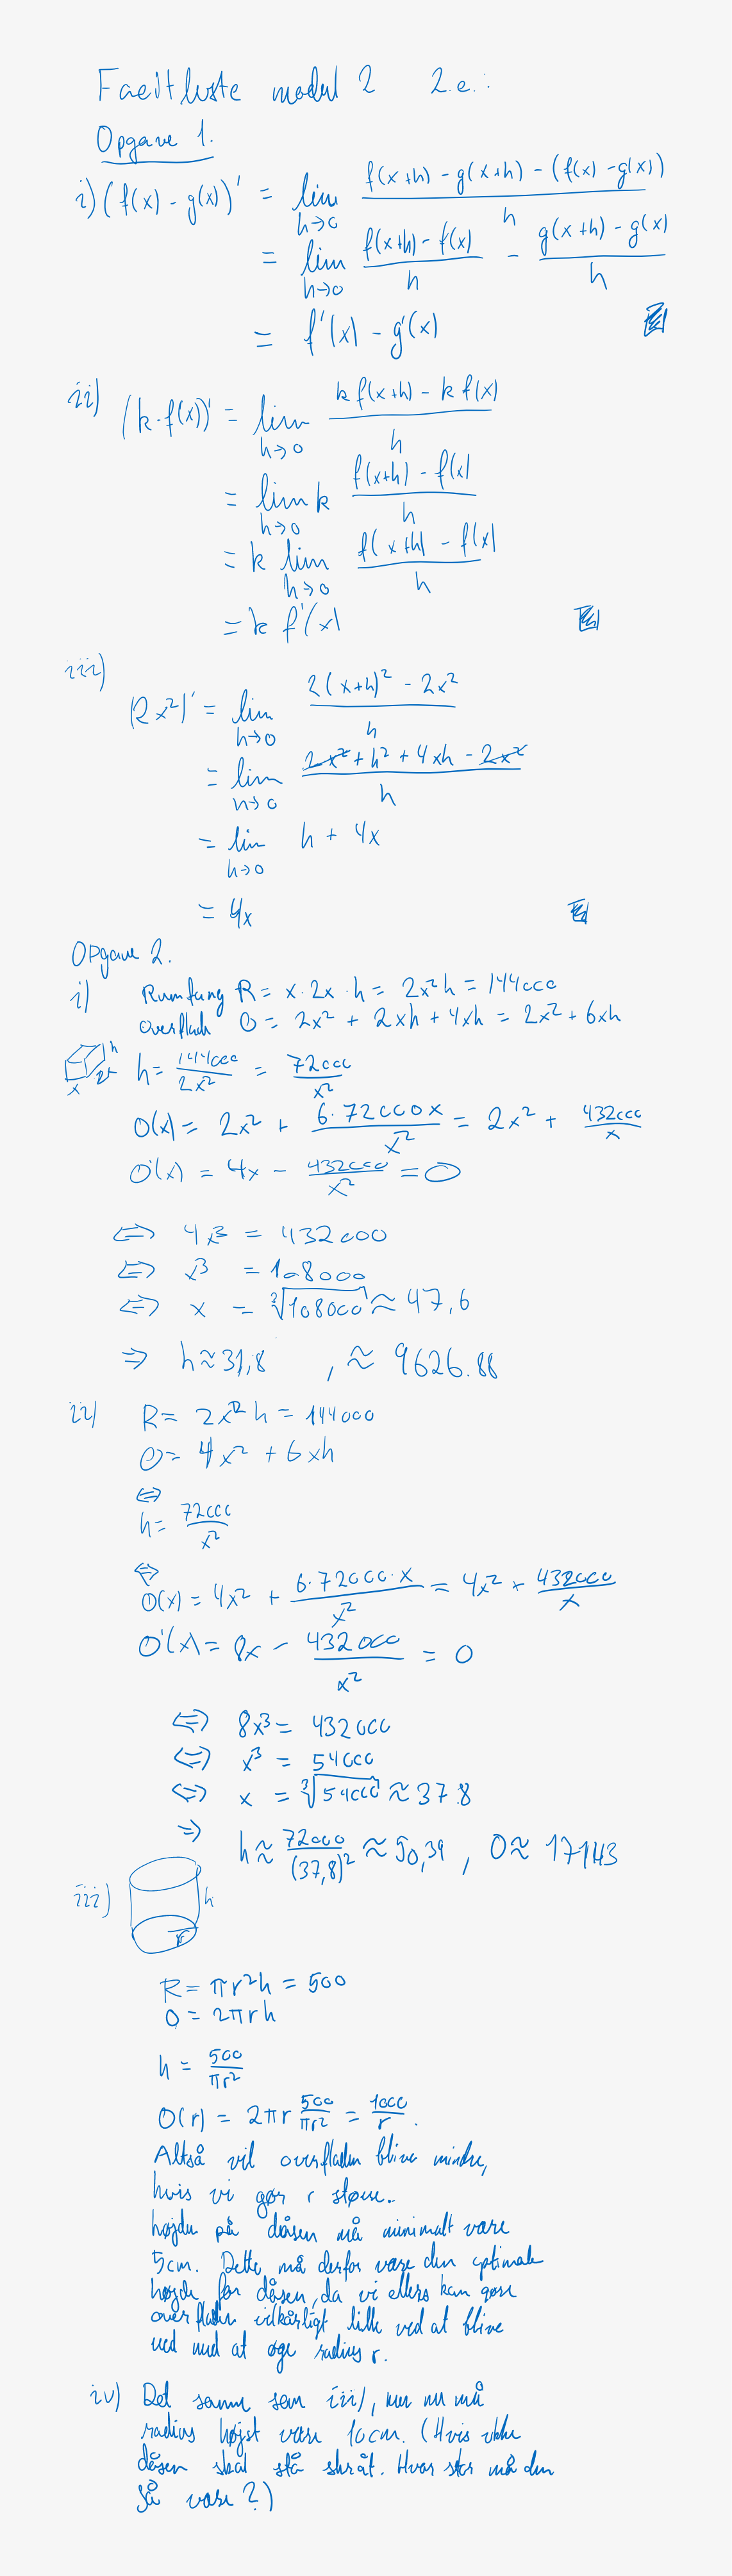 Facitliste modul 2 2.e.:
Opgave 1.
i) (f(x) - g(x))' = lim h→0 (f(x+h) - g(x+h) - (f(x) - g(x))) / h
= lim h→0 (f(x+h) - f(x)) / h - (g(x+h) - g(x)) / h
= f'(x) - g'(x)
ii) (k·f(x))' = lim h→0 (k f(x+h) - k f(x)) / h
= lim h→0 k (f(x+h) - f(x)) / h
= k lim h→0 (f(x+h) - f(x)) / h
= k f'(x)
iii)
(2x²)' = lim h→0 (2(x+h)² - 2x²) / h
= lim h→0 (2x² + h² + 4xh - 2x²) / h
= lim h→0 h + 4x
= 4x
Opgave 2.
i) Rumfang R = x · 2x · h = 2x²h = 144000
Overflade O = 2x² + 2xh + 4xh = 2x² + 6xh
x 2x h
h = 144000 / 2x² = 72000 / x²
O(x) = 2x² + 6·72000x / x² = 2x² + 432000 / x
O'(x) = 4x - 432000 / x² = 0
⇔ 4x³ = 432000
⇔ x³ = 108000
⇔ x = ³√108000 ≈ 47,6
⇒ h ≈ 31,8 , ≈ 9626.88
ii) R = 2x²h = 144000
O = 4x² + 6xh
⇔
h = 72000 / x²
⇔
O(x) = 4x² + 6·72000·x / x² = 4x² + 432000 / x
O'(x) = 8x - 432000 / x² = 0
⇔ 8x³ = 432000
⇔ x³ = 54000
⇔ x = ³√54000 ≈ 37.8
⇒ h ≈ 72000 / (37,8)² ≈ 50,39 , O ≈ 17143
iii) h
r
R = πr²h = 500
O = 2πrh
h = 500 / πr²
O(r) = 2πr 500 / πr² = 1000 / r.
Altså vil overfladen blive mindre,
hvis vi gør r større..
højden på dåsen må minimalt være
5cm. Dette må derfor være den optimale
højde for dåsen, da vi ellers kan gøre
overfladen vilkårligt lille ved at blive
ved med at øge radius r.
iv) Det samme som iii), men nu må
radius højst være 10cm. (Hvis ikke
dåsen skal stå skråt. Hvor stor må den
så være?)